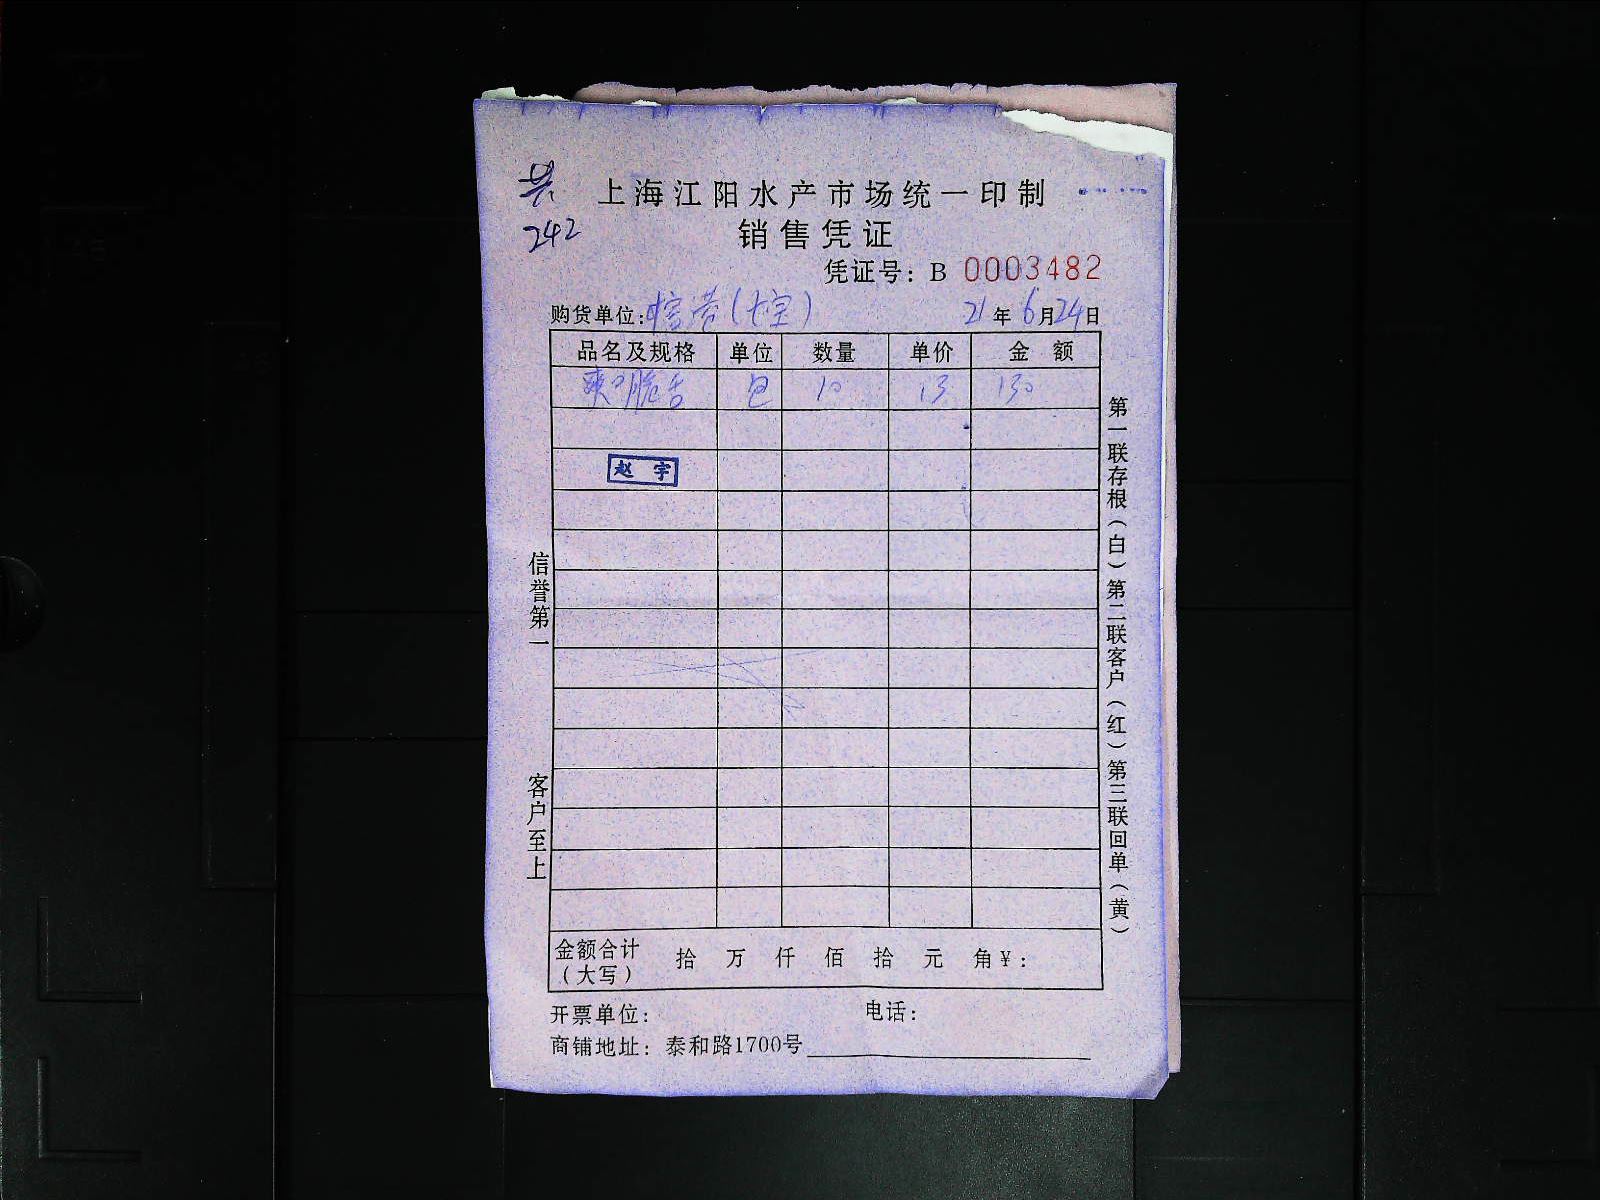 共
242
上海江阳水产市场统一印制
销售凭证
凭证号：B 0003482
购货单位： 21年6月24日
品名及规格 单位 数量 单价 金 额
爽口脆舌 包 10 13 130
赵 宇
信誉第一
客户至上
第一联存根（白）第二联客户（红）第三联回单（黄）
金额合计（大写） 拾 万 仟 佰 拾 元 角￥：
开票单位： 电话：
商铺地址：泰和路1700号